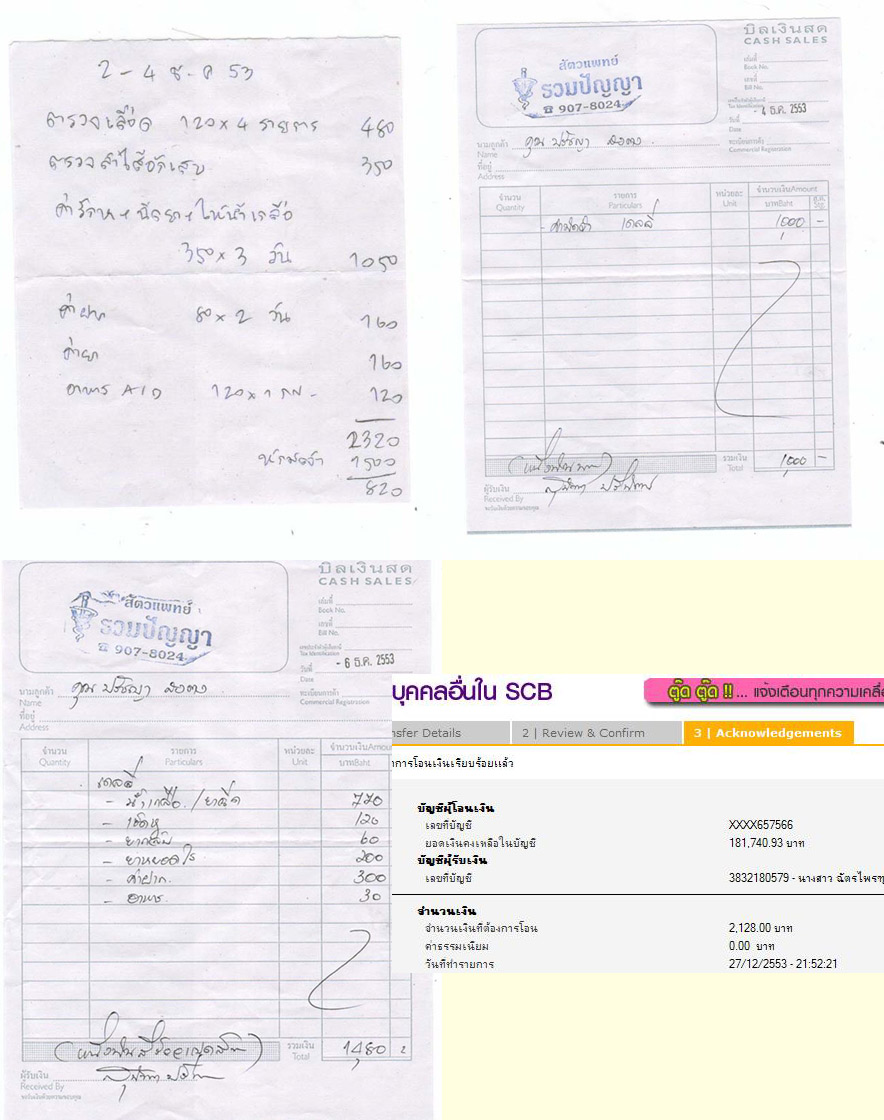 2-4 ธ.ค 53
ตรวจเลือด 120 x 4 รายการ 480
ตรวจลำไส้อักเสบ 350
ค่ารักษา+ฉีดยา+ให้น้ำเกลือ
350 x 3 วัน 1050
ค่าฝาก 80 x 2 วัน 160
ค่ายา 160
อาหาร A/D 120 x 1 120
2320
หักมัดจำ 1500
820
บิลเงินสด
CASH SALES
สัตวแพทย์
รวมปัญญา
☎ 907-8024
เล่มที่
Book No.
เลขที่
Bill No.
- 4 ธ.ค. 2553
วันที่
Date
ทะเบียนการค้า
Commercial Registration
นามลูกค้า คุณ ปรัชญา
Name
ที่อยู่
Address
จำนวน รายการ หน่วยละ จำนวนเงินAmount
Quantity Particulars Unit บาทBaht
- ค่าผ่าตัด เดลลี่ 1000 -
(หนึ่งพันบาท) รวมเงิน 1,000 -
Total
ผู้รับเงิน
Received By
บิลเงินสด
CASH SALES
สัตวแพทย์
รวมปัญญา
☎ 907-8024
เล่มที่
Book No.
เลขที่
Bill No.
- 6 ธ.ค. 2553
วันที่
Date
ทะเบียนการค้า
Commercial Registration
นามลูกค้า คุณ ปรัชญา
Name
ที่อยู่
Address
จำนวน รายการ หน่วยละ จำนวนเงินAmou
Quantity Particulars Unit บาทBaht
เดลลี่
- น้ำเกลือ/ยาฉีด 770
- เช็ดหู 120
- ยากลับ 60
- ยาหยอด 200
- ค่าฝาก 300
- อาหาร 30
(หนึ่งพันสี่ร้อยแปดสิบ) รวมเงิน 1,480
Total
ผู้รับเงิน
Received By
บุคคลอื่นใน SCB
ตู๊ด ตู๊ด !! ... แจ้งเตือนทุกความเคลื่
nsfer Details 2 | Review & Confirm 3 | Acknowledgements
การโอนเงินเรียบร้อยแล้ว
บัญชีผู้โอนเงิน
เลขที่บัญชี XXXX657566
ยอดเงินคงเหลือในบัญชี 181,740.93 บาท
บัญชีผู้รับเงิน
เลขที่บัญชี 3832180579 - นางสาว ฉัตรไพรฑู
จำนวนเงิน
จำนวนเงินที่ต้องการโอน 2,128.00 บาท
ค่าธรรมเนียม 0.00 บาท
วันที่ทำรายการ 27/12/2553 - 21:52:21